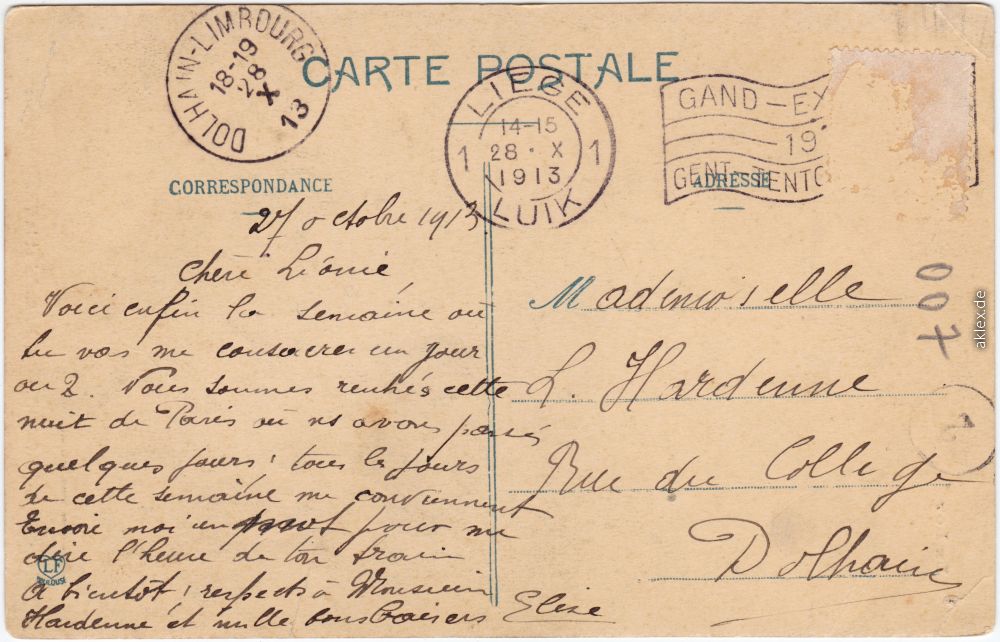 CARTE POSTALE
DOLHAIN-LIMBOURG
18-19
28
X
13
LIEGE
1 14-15 1
28 · X
1913
LUIK
GAND-EX
19
GENT-TENTO
CORRESPONDANCE
ADRESSE
27 octobre 1913
Chère Léonie
Voici enfin la semaine où
tu vas me consacrer un jour
ou 2. Nous sommes rentrés cette
nuit de Paris où ns avons passés
quelques jours; tous les jours
de cette semaine me conviennent
Envoie moi un mot pour me
dire l'heure de ton train
A bientôt; respects à Monsieur
Hardenne et mille bons baisers Elise
Mademoiselle
L. Hardenne
Rue du Collège
Dolhain
007
LF
TOULOUSE
aklex.de